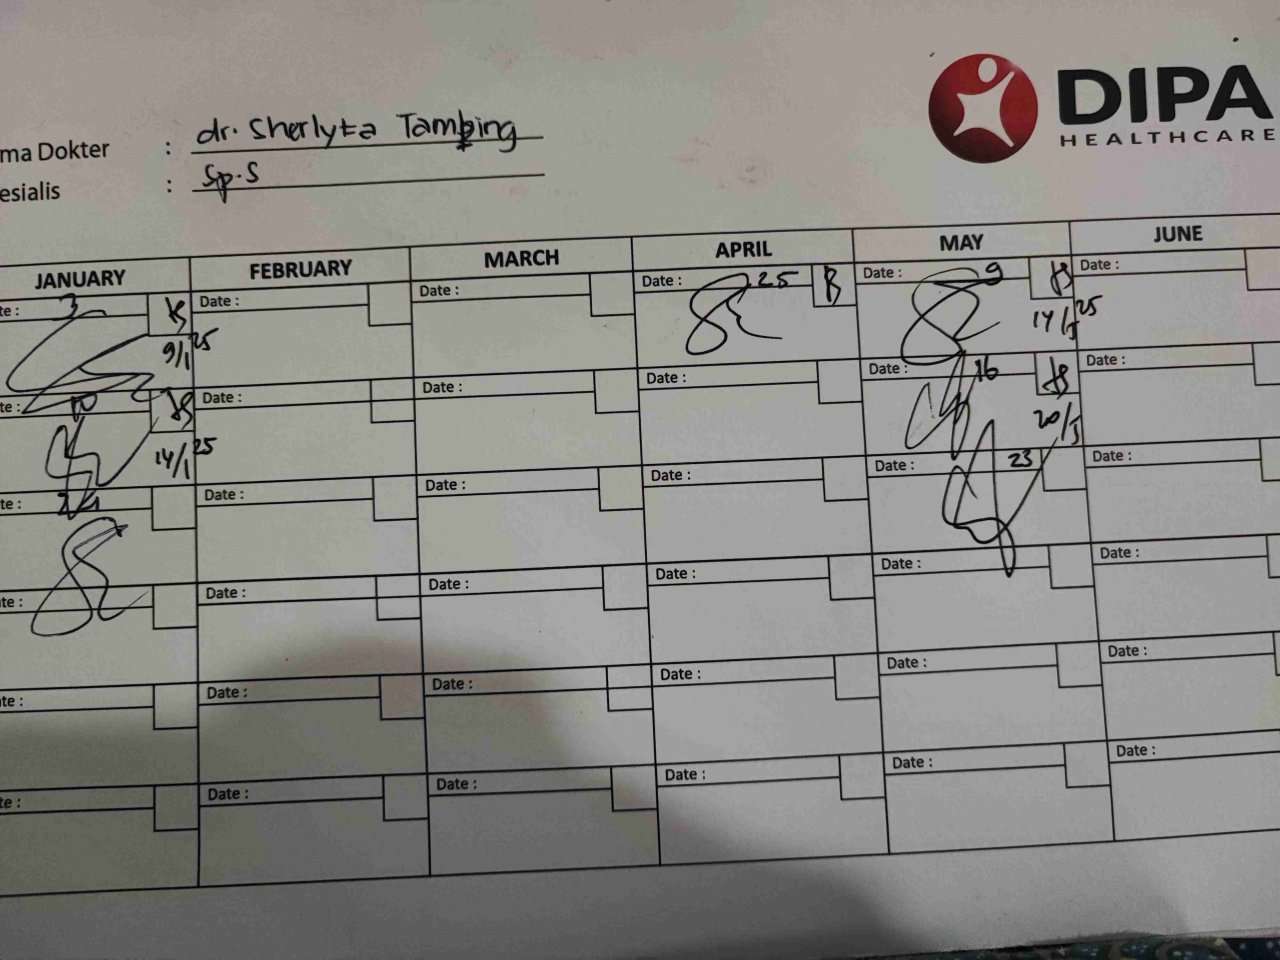 DIPA
HEALTHCARE
ma Dokter : dr. Sherlyta Tamping
esialis : Sp.S
JANUARY FEBRUARY MARCH APRIL MAY JUNE
te : 3 Date : Date : Date : 25 Date : 9 Date :
9/1 25 14/5 25
te : 10 Date : Date : Date : Date : 16 Date :
14/1 25 20/5
te : Date : Date : Date : Date : 23 Date :
te : Date : Date : Date : Date : Date :
te : Date : Date : Date : Date : Date :
te : Date : Date : Date : Date : Date :